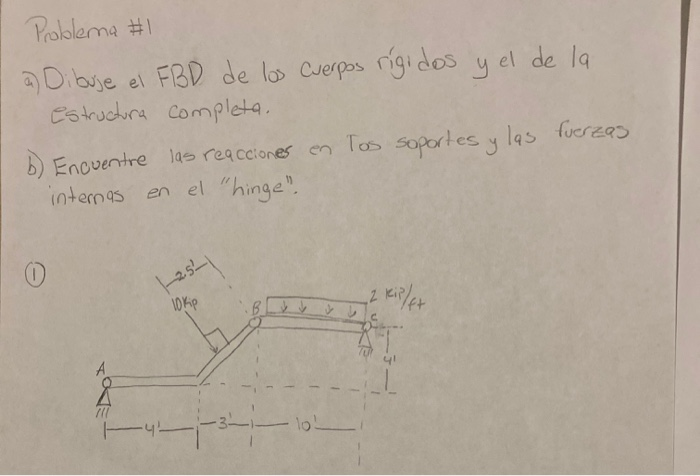 Problema #1
a) Dibuje el FBD de los cuerpos rígidos y el de la
estructura completa.
b) Encuentre las reacciones en los soportes y las fuerzas
internas en el "hinge".
①
25'
10kip
B
2 kip/ft
C
4'
A
4'
3'
10'